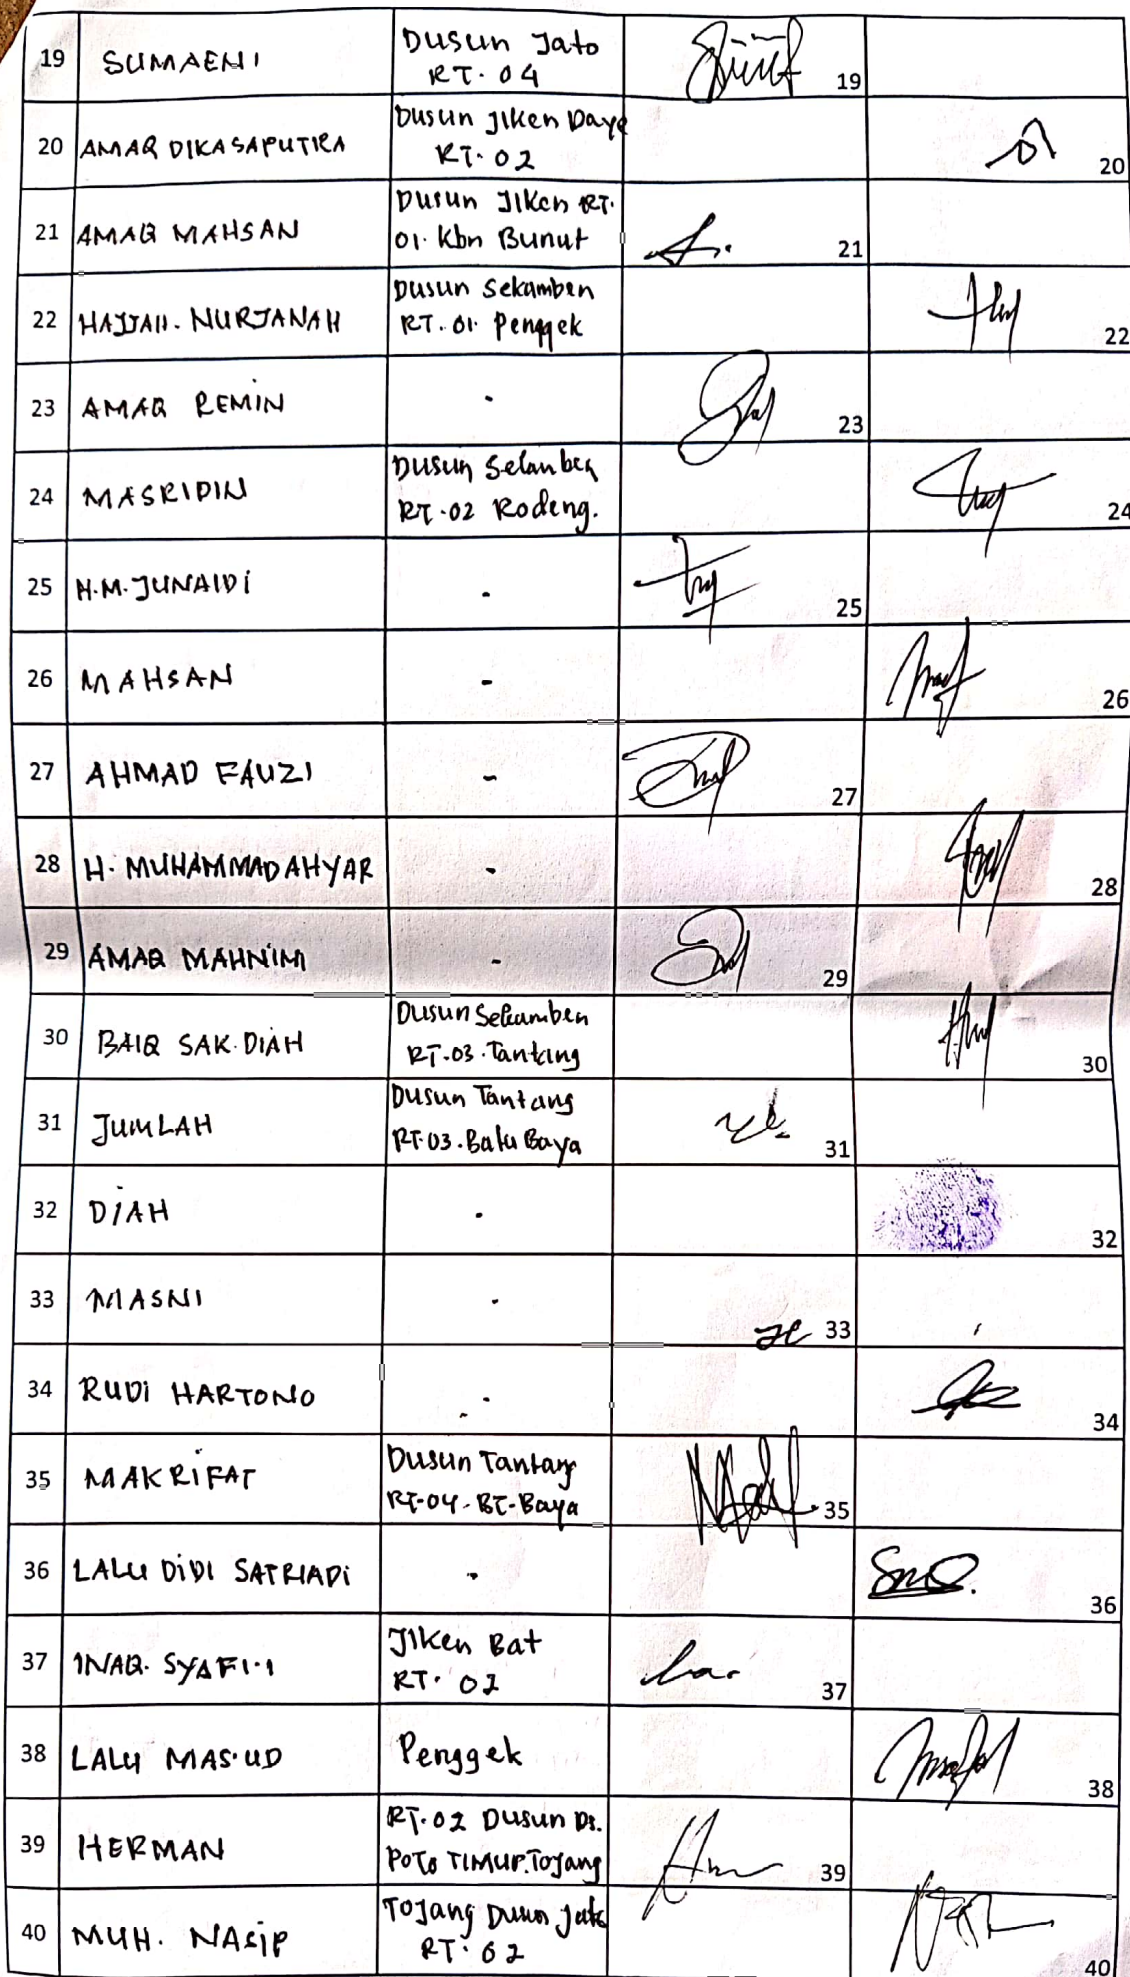 19 SUMAENI Dusun Jato
RT. 04 19
20 AMAQ DIKASAPUTRA Dusun Jiken Daye
RT. 02 20
21 AMAQ MAHSAN Dusun Jiken RT.
01. Kbn Bunut 21
22 HAJJAH. NURJANAH Dusun Sekamben
RT. 01. Penggek 22
23 AMAQ REMIN - 23
24 MASRIDIN Dusun Selanben
RT.02 Rodeng. 24
25 H.M. JUNAIDI - 25
26 MAHSAN - 26
27 AHMAD FAUZI - 27
28 H. MUHAMMAD AHYAR - 28
29 AMAQ MAHNIM - 29
30 BAIQ SAK.DIAH Dusun Sekamben
RT.03. Tantang 30
31 JUMLAH Dusun Tantang
RT.03. Batu Baya 31
32 DIAH - 32
33 MASNI - 33
34 RUDI HARTONO - 34
35 MAKRIFAT Dusun Tantang
RT.04-BT-Baya 35
36 LALU DIDI SATRIADI - 36
37 INAQ. SYAFI.I Jiken Bat
RT. 02 37
38 LALU MAS'UD Penggek 38
39 HERMAN RT.02 Dusun Ds.
POTO TIMUR.Tojang 39
40 MUH. NASIP Tojang Dusun Jato
RT. 02 40